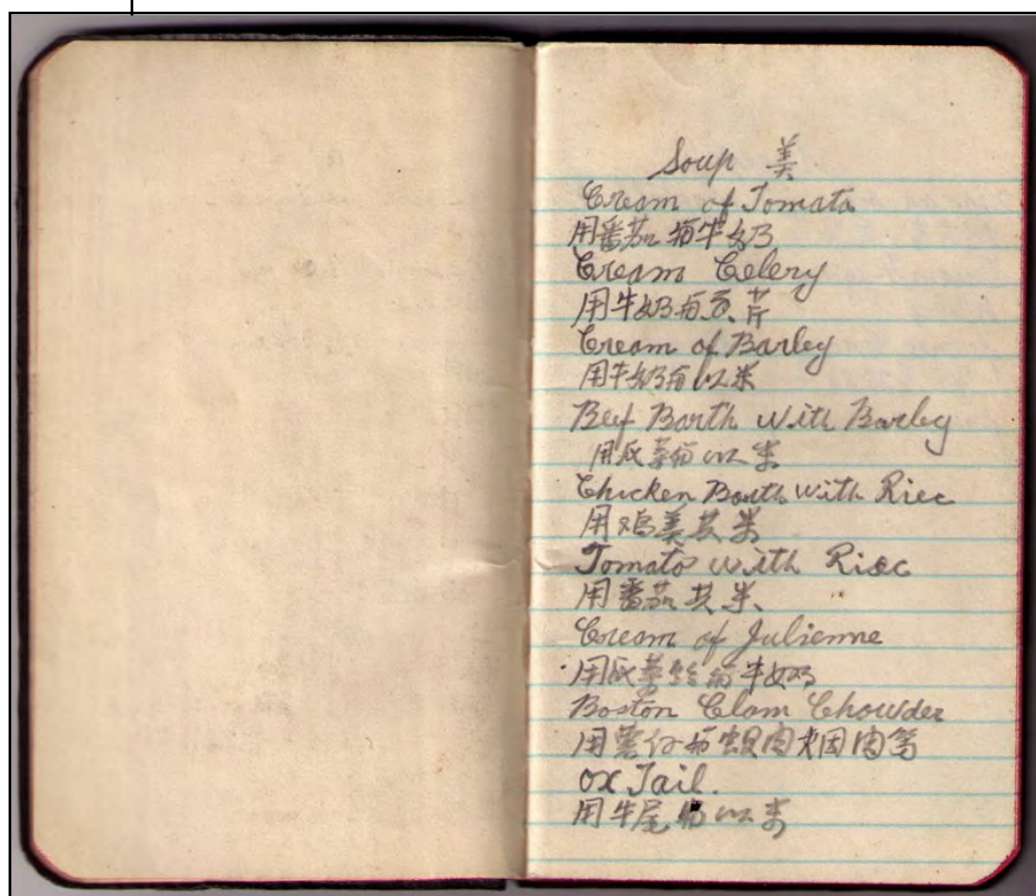 Soup 美
Cream of Tomato
用番茄 牛奶
Cream Celery
用牛奶 芹
Cream of Barley
用牛奶 以米
Beef Barth With Barley
用 菜 以米
Chicken Barth with Rice
用鸡美其米
Tomato with Rice
用番茄其米
Cream of Julienne
用 菜丝 牛奶
Boston Clam Chowder
用薯仔 蚬肉烟肉等
Ox Tail.
用牛尾 以米